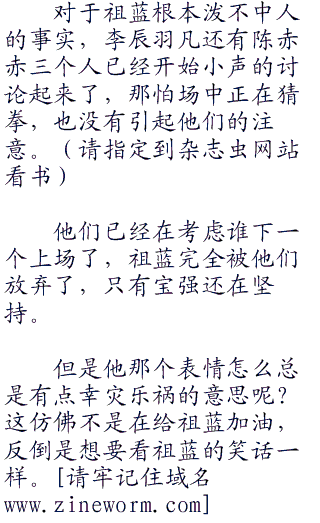 对于祖蓝根本泼不中人
的事实，李辰羽凡还有陈赤
赤三个人已经开始小声的讨
论起来了，那怕场中正在猜
拳，也没有引起他们的注
意。（请指定到杂志虫网站
看书）
他们已经在考虑谁下一
个上场了，祖蓝完全被他们
放弃了，只有宝强还在坚
持。
但是他那个表情怎么总
是有点幸灾乐祸的意思呢？
这仿佛不是在给祖蓝加油，
反倒是想要看祖蓝的笑话一
样。[请牢记住域名
www.zineworm.com]